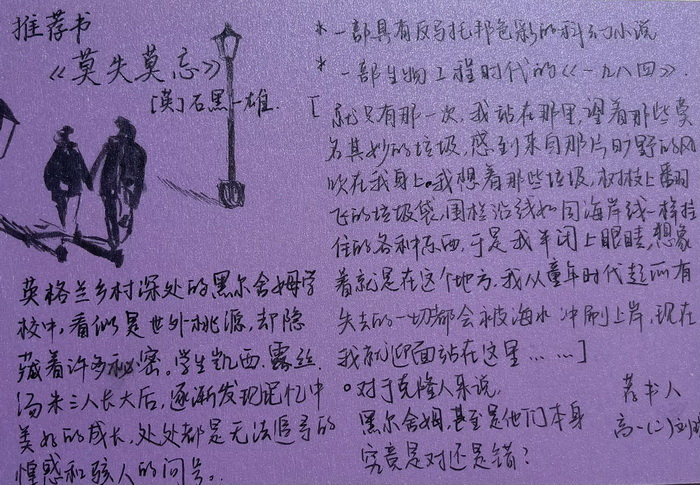 推荐书
《莫失莫忘》
[英]石黑一雄.
英格兰乡村深处的黑尔舍姆学
校中,看似是世外桃源,却隐
藏着许多秘密。学生凯西.露丝.
汤米三人长大后,逐渐发现记忆中
美好的成长,处处都是无法追寻的
惶惑和骇人的问号。
*一部具有反乌托邦色彩的科幻小说
*一部生物工程时代的《一九八四》.
[就只有那一次,我站在那里,望着那些莫
名其妙的垃圾,感到来自那片旷野的风
吹在我身上。我想着那些垃圾,树枝上翻
飞的垃圾袋,围栏沿线如同海岸线一样挂
住的各种东西,于是我半闭上眼睛,想象
着就是在这个地方,我从童年时代起所有
失去的一切都会被海水冲刷上岸,现在
我就迎面站在这里……]
对于克隆人来说,
黑尔舍姆,甚至是他们本身
究竟是对还是错?
荐书人
高一(二)刘